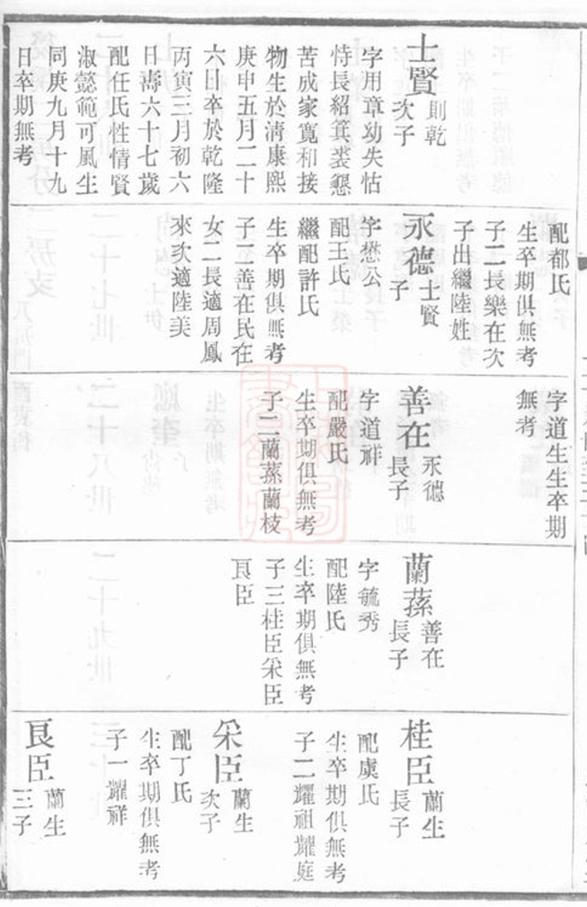 士賢 則乾
次子
字用章幼失怙
恃長紹箕裘懇
苦成家寬和接
物生於清康熙
庚申五月二十
六日卒於乾隆
丙寅三月初六
日壽六十七歲
配任氏性情賢
淑懿範可風生
同庚九月十九
日卒期無考
配都氏
生卒期俱無考
子二長樂在次
子出繼陸姓
永德 士賢
子
字懋公
配王氏
繼配許氏
生卒期俱無考
子二善在民在
女二長適周鳳
來次適陸美
字道生生卒期
無考
善在 永德
長子
字道祥
配嚴氏
生卒期俱無考
子二蘭蓀蘭枝
蘭蓀 善在
長子
字毓秀
配陸氏
生卒期俱無考
子三桂臣采臣
良臣
桂臣 蘭生
長子
配虞氏
生卒期俱無考
子二耀祖耀庭
采臣 蘭生
次子
配丁氏
生卒期俱無考
子一耀祥
良臣 蘭生
三子